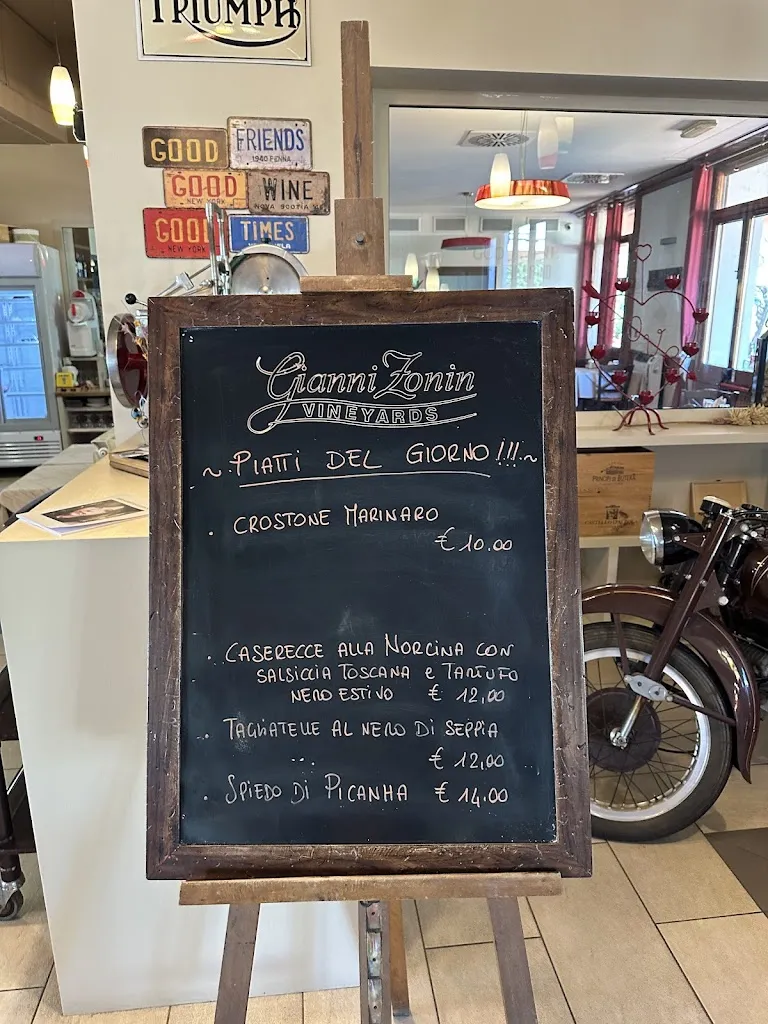 TRIUMPH
GOOD
FRIENDS
1940 PENNA
GOOD
NEW YORK
WINE
NOVA SCOTIA
GOOD
NEW YORK
TIMES
Gianni Zonin
VINEYARDS
~ PIATTI DEL GIORNO!!! ~
· CROSTONE MARINARO
€ 10.00
· CASERECCE ALLA NORCINA CON
SALSICCIA TOSCANA e TARTUFO
NERO ESTIVO € 12,00
· TAGLIATELLE AL NERO DI SEPPIA
... € 12,00
· SPIEDO DI PICANHA € 14.00